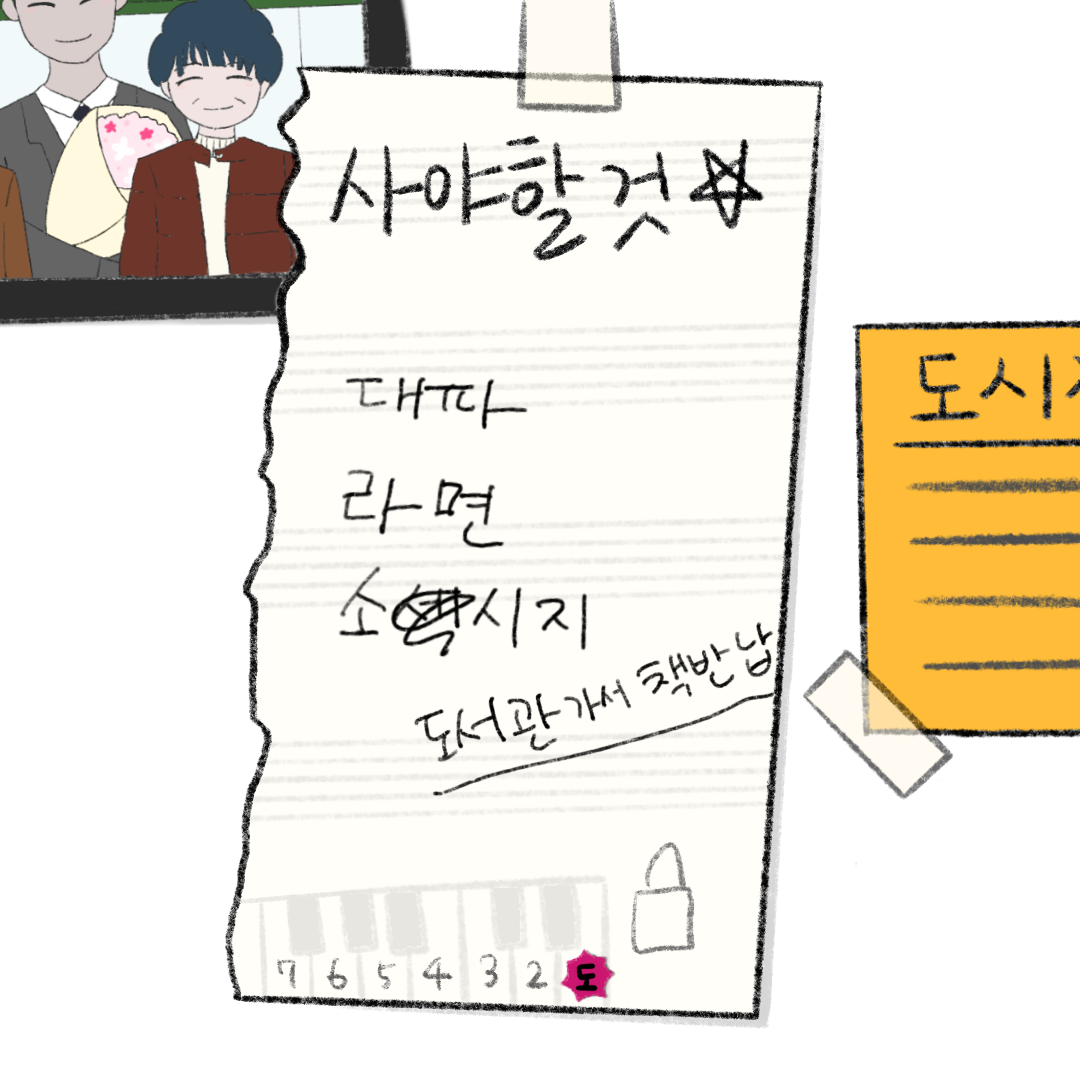 사야할것☆
대파
라면
소시지
도서관 가서 책반납
7 6 5 4 3 2 도
도시